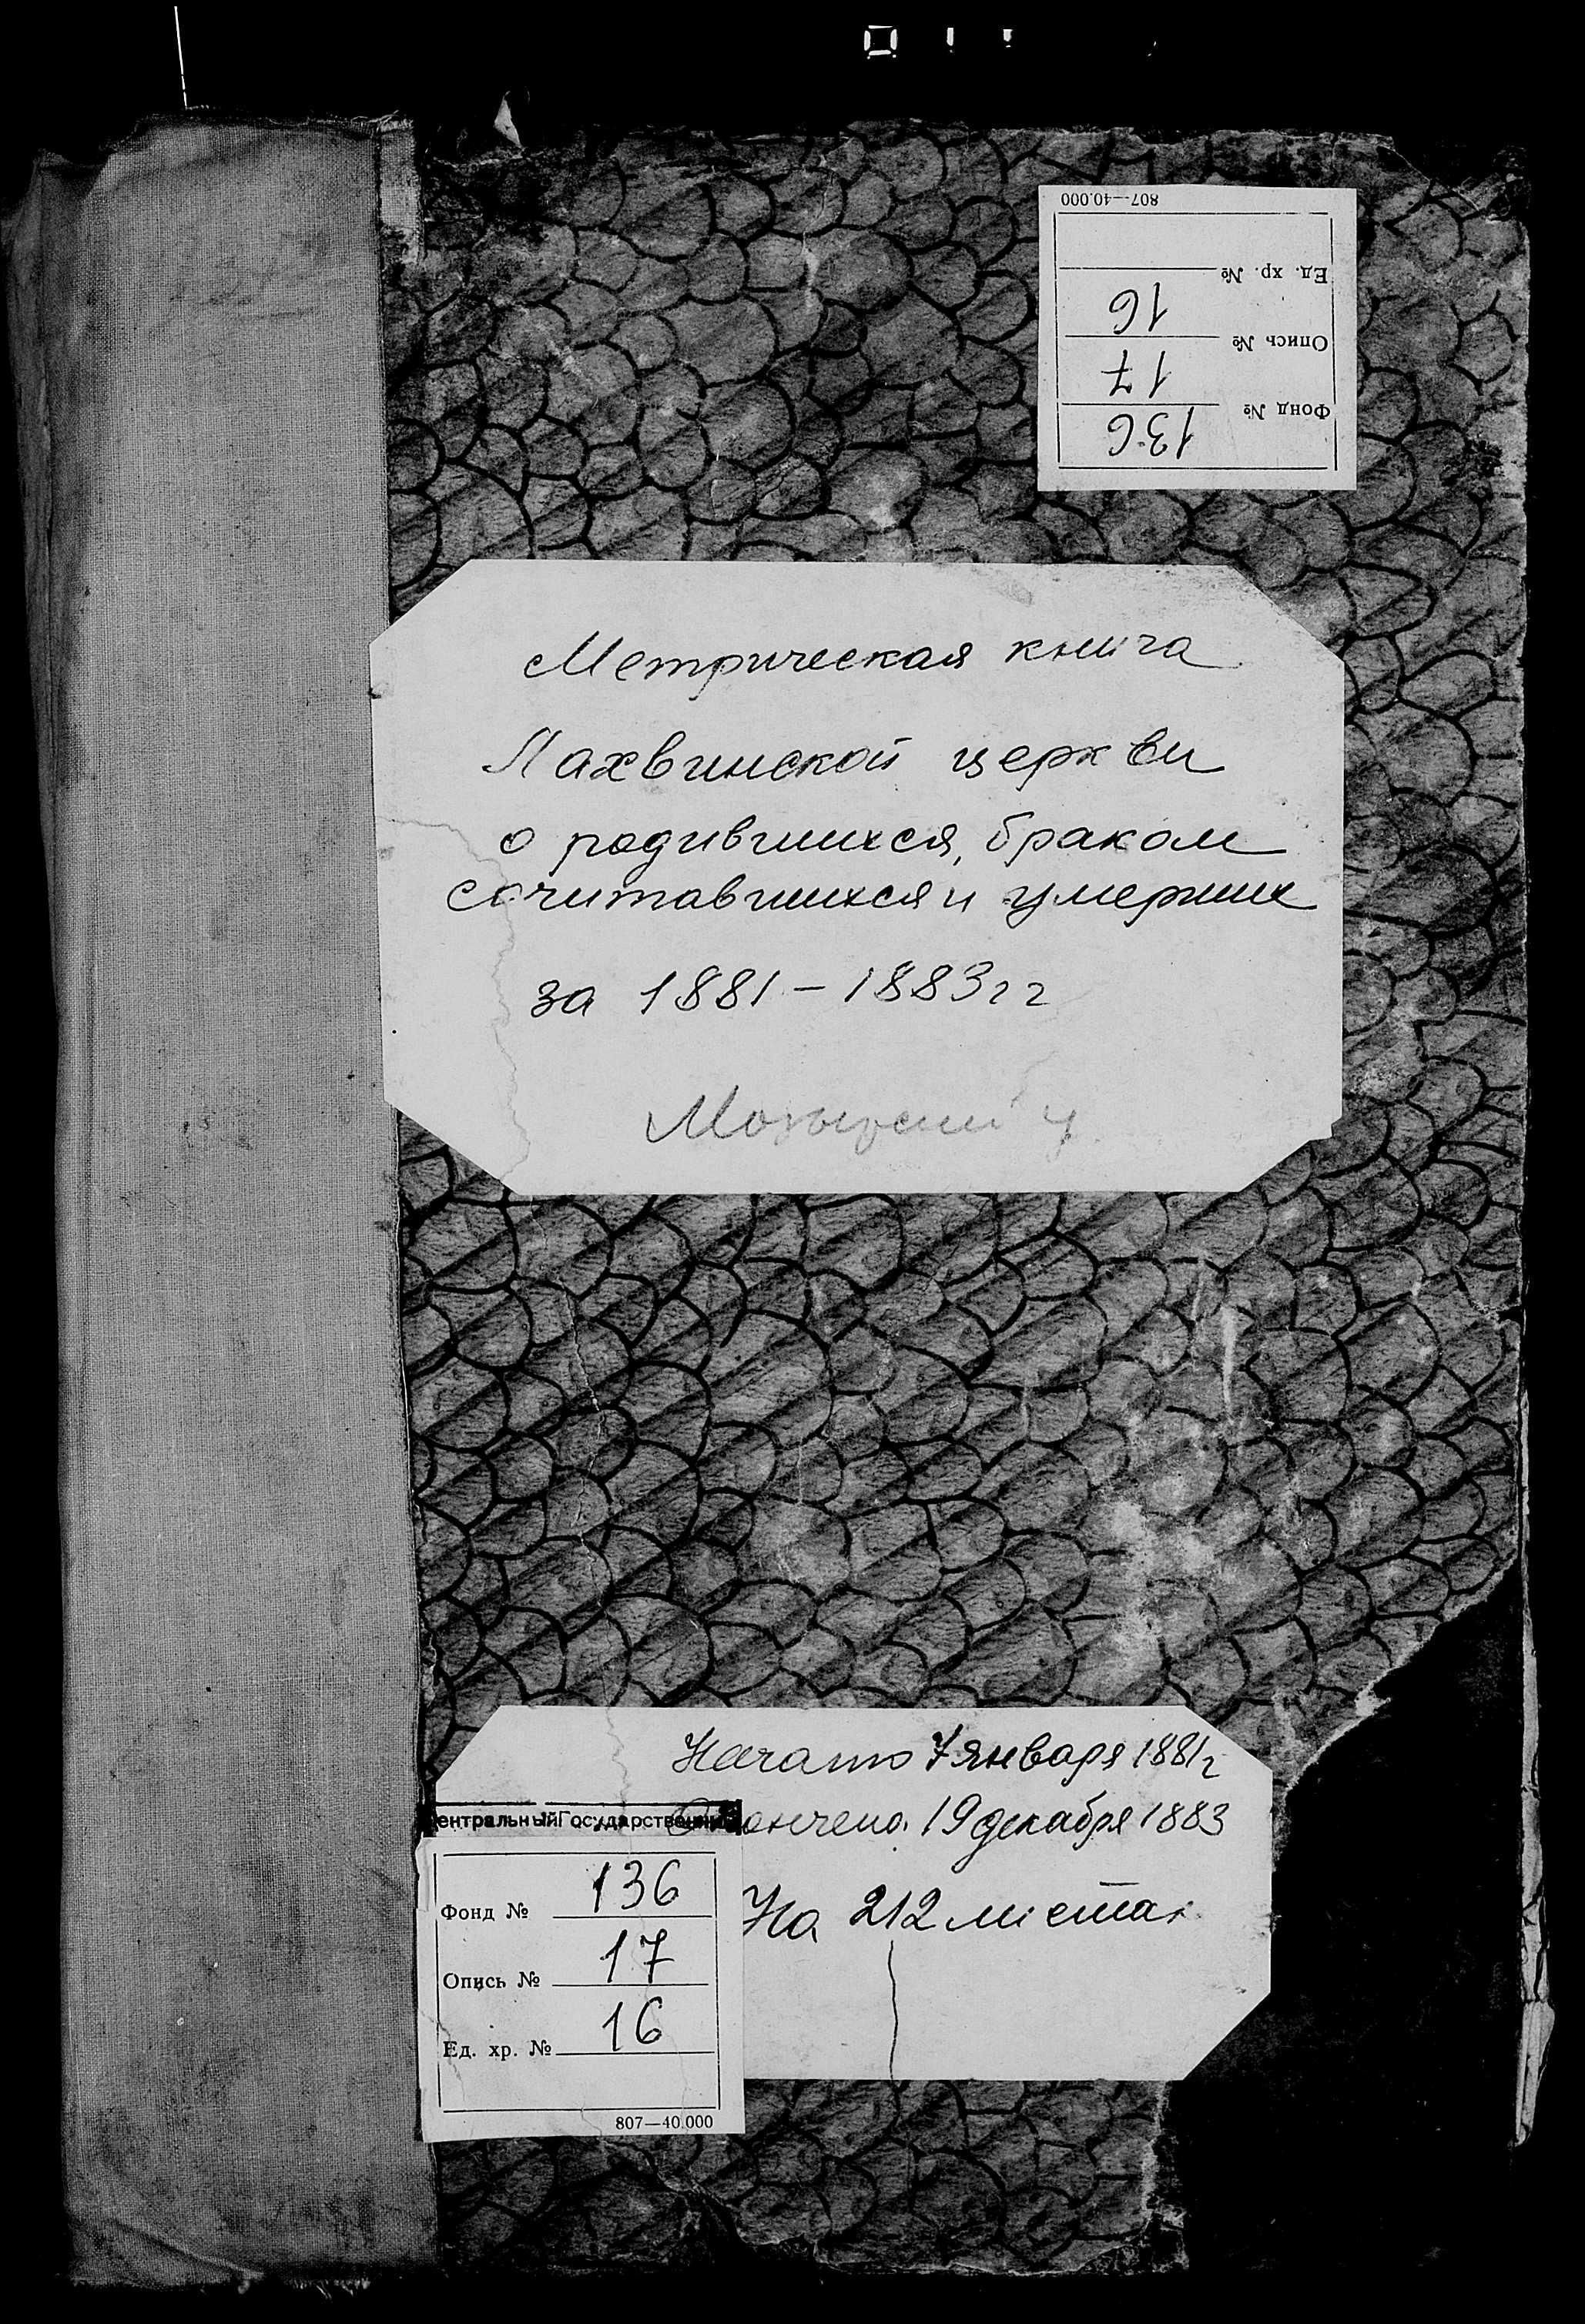 807—40.000
Ед. хр. №
16
Опись №
17
Фонд №
136
Метрическая книга
Лахвинской церкви
о родившихся, браком
сочитавшихся и умерших
за 1881 – 1883 г г
Мозырский у
Начато 7 января 1881 г
Окончено 19 декабря 1883
На 212 листах
ентральный Государственн
Фонд № 136
Опись № 17
Ед. хр. № 16
807—40.000